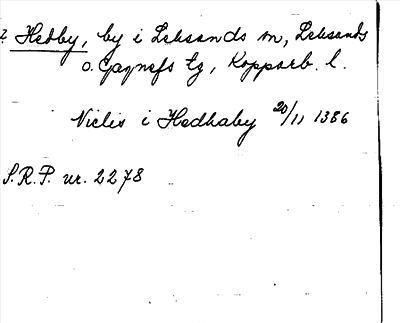 2. Hedby, by i Leksands sn, Leksands
o. Gagnefs tg, Kopparb. l.
Niclis i Hedhaby 20/11 1386
S.R.P. nr. 2278